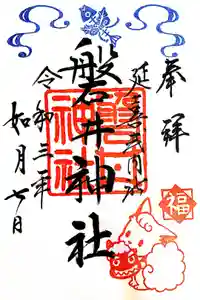 奉拝
延喜式内社
磐井神社
令和三年
如月七日
福